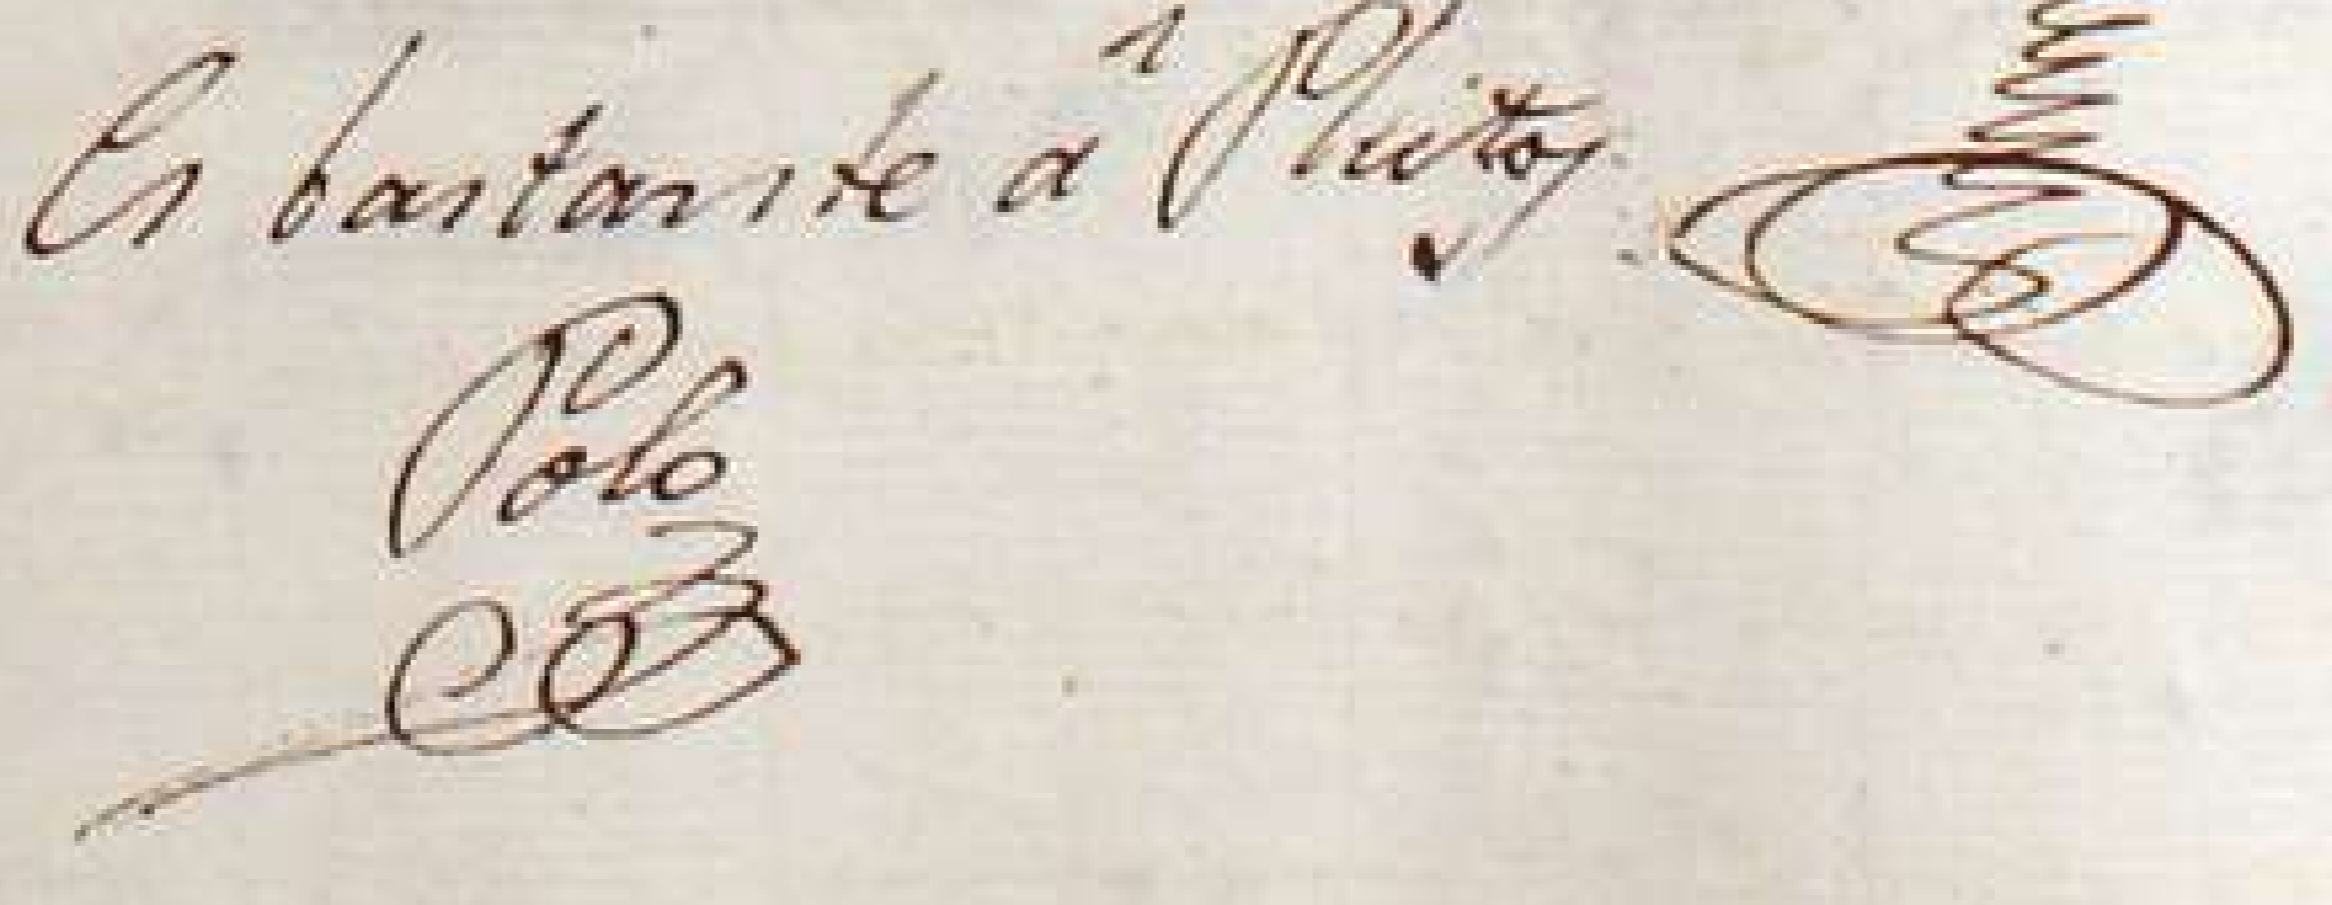 Es bastante a Pleitos
Polo